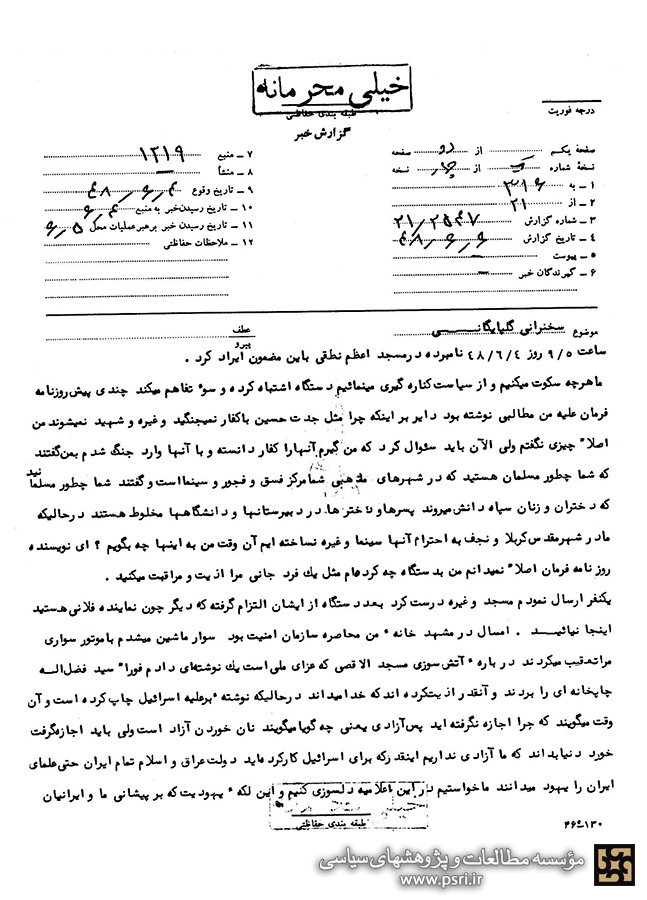 خیلی محرمانه
طبقه بندی حفاظتی
گزارش خبر
درجه فوریت
صفحه یکم از دو صفحه
نسخهٔ شماره از چهار نسخه
۱ ـ به ۳۱۶
۲ ـ از ۲۱
۳ ـ شماره گزارش ۲۱/۲۵۴۷
۴ ـ تاریخ گزارش ۴۸/۶/۶
۵ ـ پیوست
۶ ـ گیرندگان خبر
۷ ـ منبع ۱۲۱۹
۸ ـ منشأ
۹ ـ تاریخ وقوع ۴۸/۶/۴
۱۰ ـ تاریخ رسیدن خبر به منبع ۶/۴
۱۱ ـ تاریخ رسیدن خبر برهبر عملیات محل ۶/۵
۱۲ ـ ملاحظات حفاظتی
موضوع سخنرانی گلپایگانی
عطف
پیرو
ساعت ۹/۵ روز ۴۸/۶/۴ نامبرده در مسجد اعظم نطقی باین مضمون ایراد کرد .
ما هرچه سکوت میکنیم و از سیاست کناره گیری مینمائیم دستگاه اشتباه کرده و سوء تفاهم میکند چندی پیش روزنامه
فرمان علیه من مطالبی نوشته بود دایر بر اینکه چرا مثل جدت حسین با کفار نمیجنگید و غیره و شهید نمیشوند من
اصلاً چیزی نگفتم ولی الآن باید سئوال کرد که من گیرم آنها را کفار دانسته و با آنها وارد جنگ شدم بمن گفتند
که شما چطور مسلمان هستید که در شهرهای مذهبی شما مرکز فسق و فجور و سینما است و گفتند شما چطور مسلمانید
که دختران و زنان سپاه دانش میروند پسرها و دخترها در دبیرستانها و دانشگاهها مخلوط هستند در حالیکه
ما در شهر مقدس کربلا و نجف به احترام آنها سینما و غیره نساخته ایم آن وقت من به اینها چه بگویم ؟ ای نویسنده
روزنامه فرمان اصلاً نمیدانم من بدستگاه چه کرده‌ام مثل یک فرد جانی مرا اذیت و مراقبت میکنید .
یکنفر ارسال نمودم مسجد و غیره درست کرد بعد دستگاه از ایشان التزام گرفته که دیگر چون نماینده فلانی هستید
اینجا نیائید . امسال در مشهد خانه ٔ من محاصره سازمان امنیت بود سوار ماشین میشدم با موتور سواری
مرا تعقیب میکردند درباره ٔ آتش سوزی مسجد الاقصی که عزای ملی است یک نوشته‌ای دادم فوراً سید فضل اله
چاپخانه ای را بردند و آنقدر اذیت کرده اند که خدا میداند در حالیکه نوشته ٔ بر علیه اسرائیل چاپ کرده است و آن
وقت میگویند که چرا اجازه نگرفته اید پس آزادی یعنی چه گویا میگویند نان خوردن آزاد است ولی باید اجازه گرفت
خورد دنیا بداند که ما آزادی نداریم اینقدر که برای اسرائیل کار کرده‌اید دولت عراق و اسلام تمام ایران حتی علمای
ایران را یهود میدانند ما خواستیم در این اعلامیه دلسوزی کنیم و این لکه ٔ یهودیت که بر پیشانی ما و ایرانیان
طبقه بندی حفاظتی
۴۶-۱۳۰
مؤسسه مطالعات و پژوهشهای سیاسی
www.psri.ir